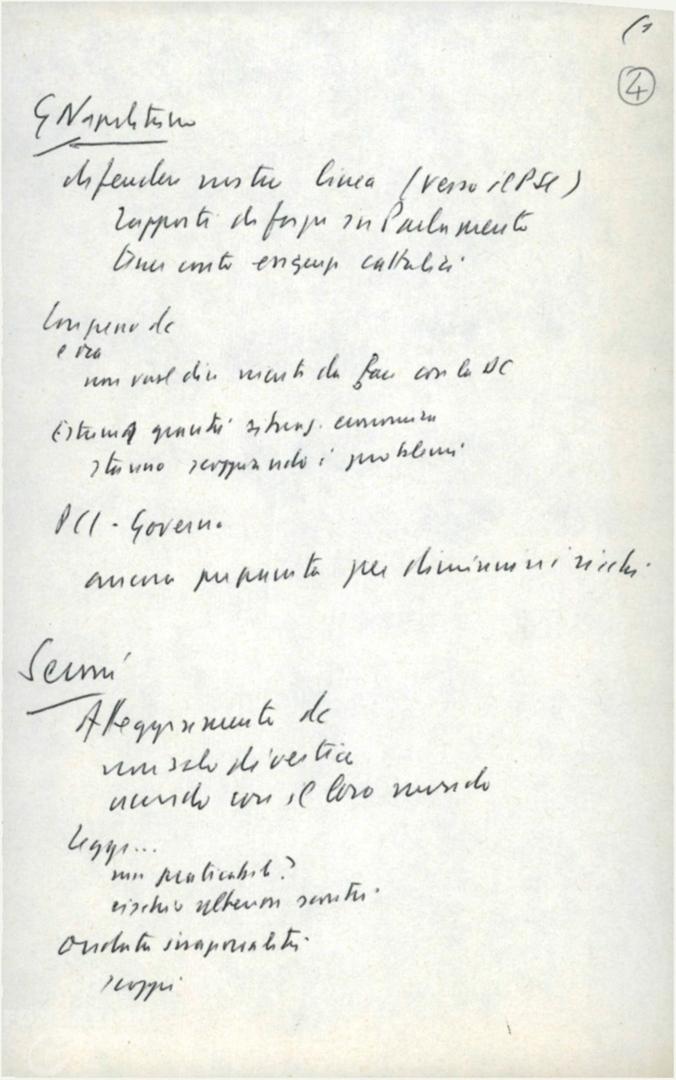 4
G Napolitano
difendere nostra linea (verso il PSI)
rapporti di forza in Parlamento
tener conto esigenze cattolici
e ora
non vuol dire niente da fare con la DC
Estrema gravità situaz. economica
stanno scoppiando i problemi
PCI - Governo
ancora proposta per diminuire i rischi
Seroni
Atteggiamento dc
non solo di vertice
accordo con il loro mondo
Legge...
non praticabile?
rischio ulteriori scontri
ondata irrazionalità
scoppi